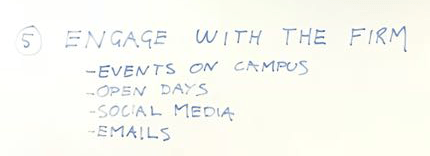 5 ENGAGE WITH THE FIRM
-EVENTS ON CAMPUS
-OPEN DAYS
-SOCIAL MEDIA
-EMAILS